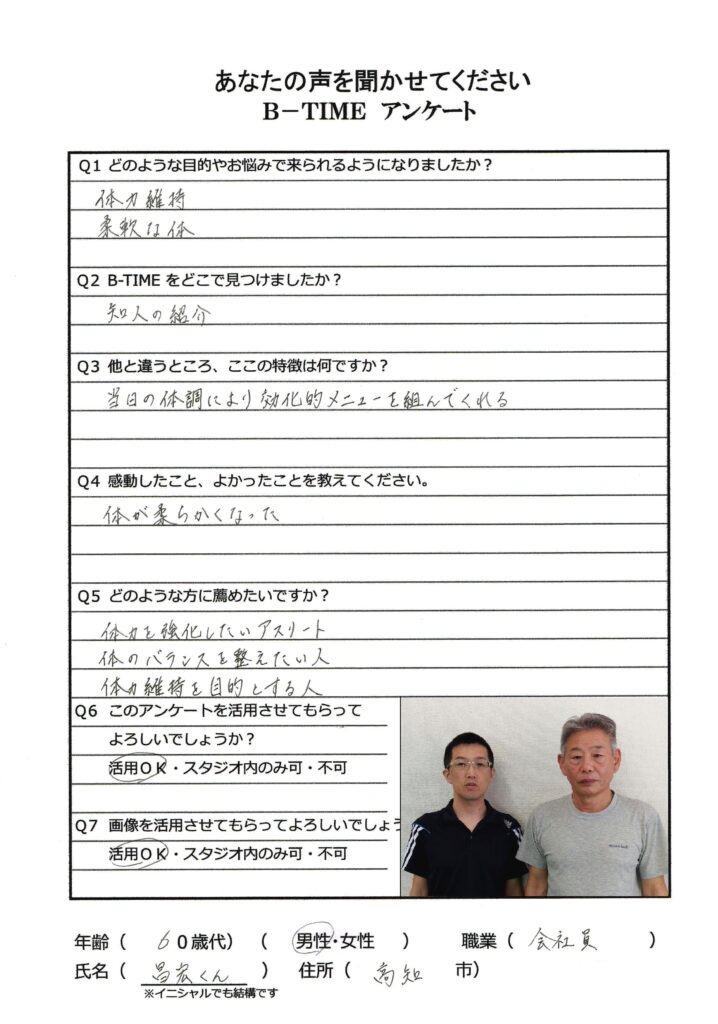 あなたの声を聞かせてください
B-TIME アンケート
Q1 どのような目的やお悩みで来られるようになりましたか？
体力維持
柔軟な体
Q2 B-TIME をどこで見つけましたか？
知人の紹介
Q3 他と違うところ、ここの特徴は何ですか？
当日の体調により効化的メニューを組んでくれる
Q4 感動したこと、よかったことを教えてください。
体が柔らかくなった
Q5 どのような方に薦めたいですか？
体力を強化したいアスリート
体のバランスを整えたい人
体力維持を目的とする人
Q6 このアンケートを活用させてもらって
よろしいでしょうか？
活用OK・スタジオ内のみ可・不可
Q7 画像を活用させてもらってよろしいでしょう
活用OK・スタジオ内のみ可・不可
年齢（ 60歳代）（ 男性・女性 ） 職業（ 会社員 ）
氏名（ 昌宏くん ） 住所（ 高知 市）
※イニシャルでも結構です